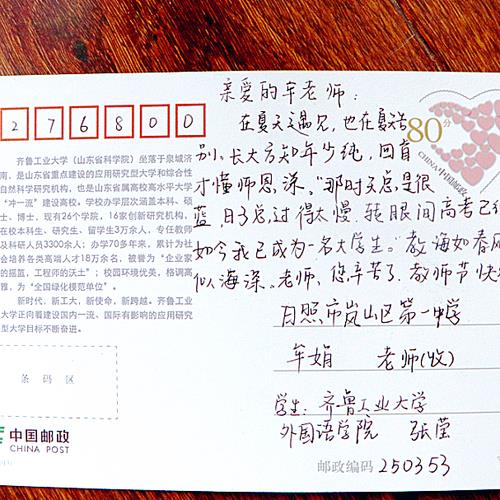 276800
亲爱的牟老师:
在夏天遇见,也在夏天告
别,长大方知年少纯,回首
才懂师恩深。"那时天总是很
蓝,日子总过得太慢,转眼间高考已
如今我已成为一名大学生。教诲如春风
似海深。老师,您辛苦了,教师节快
日照市岚山区第一中学
牟娟 老师(收)
学生:齐鲁工业大学
外国语学院 张莹
邮政编码 250353
80分
CHINA 中国邮政
齐鲁工业大学(山东省科学院)坐落于泉城济
南,是山东省重点建设的应用研究型大学和综合性
自然科学研究机构,也是山东省属高校高水平大学
"冲一流"建设高校。学校办学层次涵盖本科、硕
士、博士,现有26个学院,16家创新研究机构,
在校本科生、研究生、留学生3万余人,专任教师
及科研人员3300余人;办学70多年来,累计为社
会培养各类高端人才18万余名,被誉为"企业家
的摇篮,工程师的沃土";校园环境优美,格调高
雅,为"全国绿化模范单位"。
新时代、新工大、新使命、新跨越。齐鲁工业
大学正向着建设国内一流、国际有影响的应用研究
型大学目标不断奋进。
条码区
中国邮政
CHINA POST